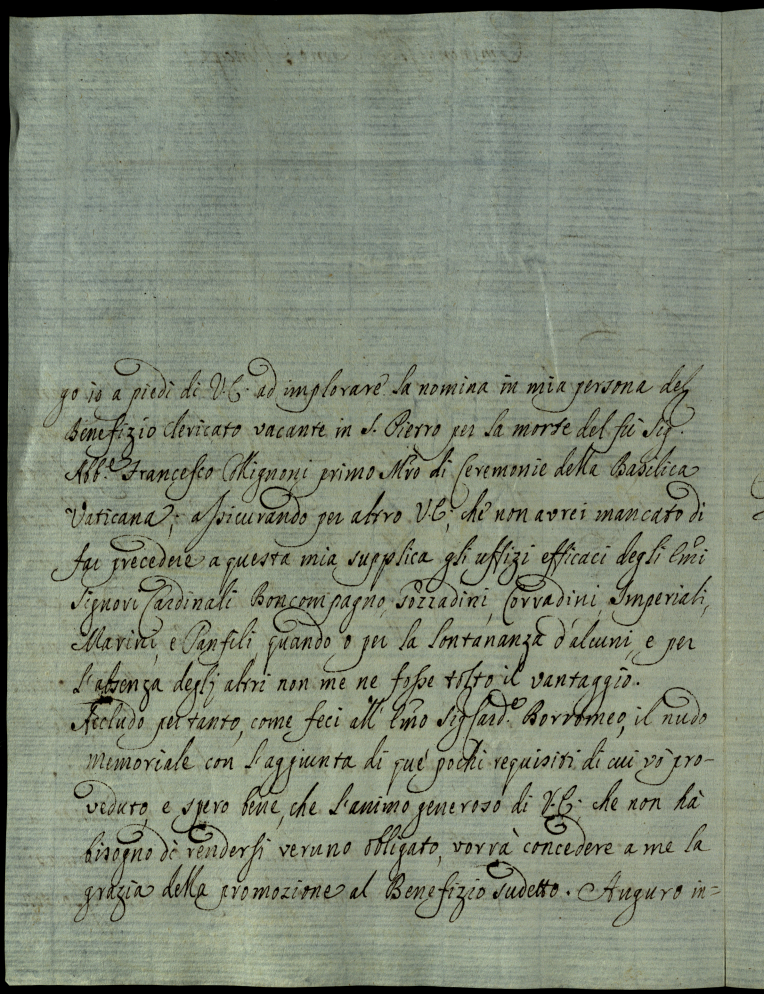 go io a piedi di V.E. ad implorare la nomina in mia persona del
Benefizio Clericato vacante in S. Pietro per la morte del fù Sig.
Abb.e Francesco Mignoni primo Mro di Ceremonie della Basilica
Vaticana; assicurando per altro V.E; che non avrei mancato di
far precedere a questa mia supplica gli uffizi efficaci degli Emi
Signori Cardinali Boncompagno, Gozzadini, Corradini, Imperiali,
Marini, e Panfili quando o per la lontananza d'alcuni, e per
l'absenza degli altri non me ne fosse tolto il vantaggio.
Accludo per tanto, come feci all' Emo Sig Card.e Borromeo, il nudo
memoriale con l'aggiunta di que' pochi requisiti di cui vò pro-
veduto, e spero bene, che l'animo generoso di V.E; che non hà
bisogno di rendersi veruno obligato, vorrà concedere a me la
grazia della promozione al Benefizio sudetto. Auguro in=